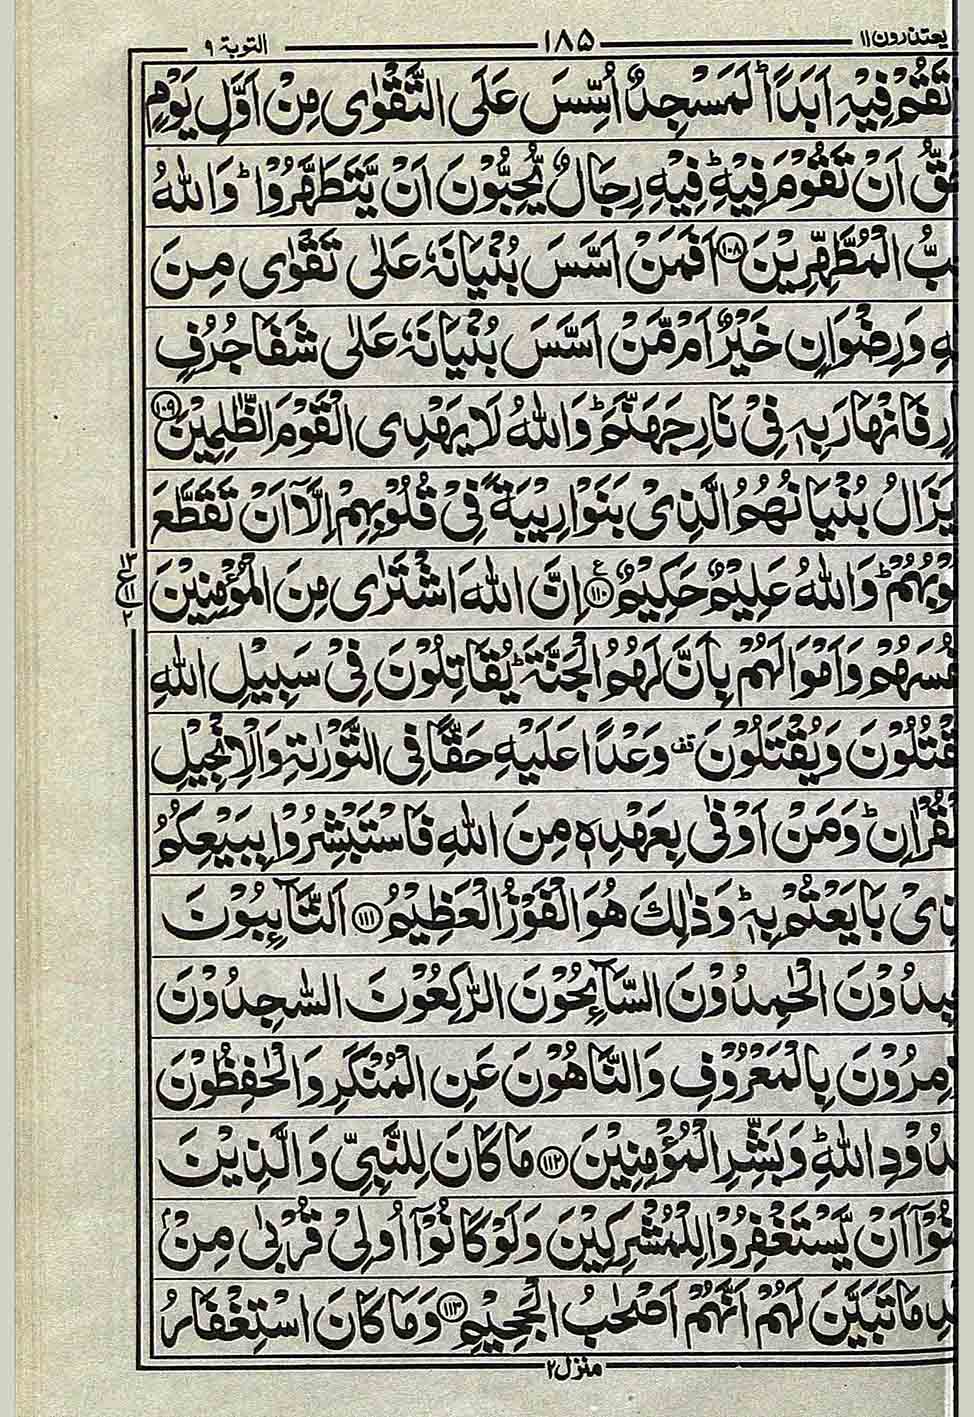 یعتذرون ۱۱ ۱۸۵ التوبة ۹
تَقُمْ فِيْهِ اَبَدًا ؕ لَمَسْجِدٌ اُسِّسَ عَلَى التَّقْوٰى مِنْ اَوَّلِ يَوْمٍ
اَنْ تَقُوْمَ فِيْهِ ؕ فِيْهِ رِجَالٌ يُّحِبُّوْنَ اَنْ يَّتَطَهَّرُوْا ؕ وَاللّٰهُ
الْمُطَّهِّرِيْنَ ۝۱۰۸ اَفَمَنْ اَسَّسَ بُنْيَانَهٗ عَلٰى تَقْوٰى مِنَ
وَرِضْوَانٍ خَيْرٌ اَمْ مَّنْ اَسَّسَ بُنْيَانَهٗ عَلٰى شَفَا جُرُفٍ
فَانْهَارَ بِهٖ فِيْ نَارِ جَهَنَّمَ ؕ وَاللّٰهُ لَا يَهْدِى الْقَوْمَ الظّٰلِمِيْنَ ۝۱۰۹
يَزَالُ بُنْيَانُهُمُ الَّذِىْ بَنَوْا رِيْبَةً فِىْ قُلُوْبِهِمْ اِلَّاۤ اَنْ تَقَطَّعَ
وْبُهُمْ ؕ وَاللّٰهُ عَلِيْمٌ حَكِيْمٌ ۝۱۱۰ ع اِنَّ اللّٰهَ اشْتَرٰى مِنَ الْمُؤْمِنِيْنَ
۱۳
ع ۱۱
۲
فُسَهُمْ وَاَمْوَالَهُمْ بِاَنَّ لَهُمُ الْجَنَّةَ ؕ يُقَاتِلُوْنَ فِىْ سَبِيْلِ اللّٰهِ
قْتُلُوْنَ وَيُقْتَلُوْنَ قف وَعْدًا عَلَيْهِ حَقًّا فِى التَّوْرٰىةِ وَالْاِنْجِيْلِ
لْقُرْاٰنِ ؕ وَمَنْ اَوْفٰى بِعَهْدِهٖ مِنَ اللّٰهِ فَاسْتَبْشِرُوْا بِبَيْعِكُمُ
ذِىْ بَايَعْتُمْ بِهٖ ؕ وَذٰلِكَ هُوَ الْفَوْزُ الْعَظِيْمُ ۝۱۱۱ اَلتَّآئِبُوْنَ
بِدُوْنَ الْحٰمِدُوْنَ السَّآئِحُوْنَ الرّٰكِعُوْنَ السّٰجِدُوْنَ
مِرُوْنَ بِالْمَعْرُوْفِ وَالنَّاهُوْنَ عَنِ الْمُنْكَرِ وَالْحٰفِظُوْنَ
دُوْدِ اللّٰهِ ؕ وَبَشِّرِ الْمُؤْمِنِيْنَ ۝۱۱۲ مَا كَانَ لِلنَّبِىِّ وَالَّذِيْنَ
نُوْۤا اَنْ يَّسْتَغْفِرُوْا لِلْمُشْرِكِيْنَ وَلَوْ كَانُوْۤا اُولِىْ قُرْبٰى مِنْۢ
مَا تَبَيَّنَ لَهُمْ اَنَّهُمْ اَصْحٰبُ الْجَحِيْمِ ۝۱۱۳ وَمَا كَانَ اسْتِغْفَارُ
منزل ۲